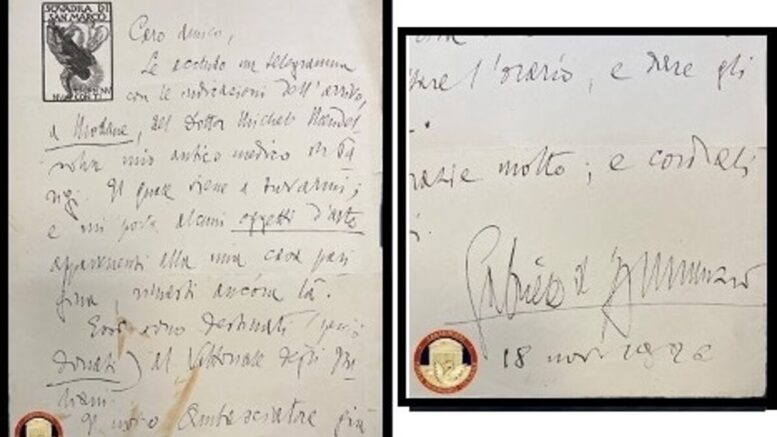 SQVADRA DI
SAN MARCO
Caro amico,
Le accludo un telegramma
con le indicazioni dell'arrivo,
a Modane, del Dottor Michele
mio antico medico di Pa-
rigi. Il quale viene a trovarmi;
e mi porta alcuni oggetti d'arte
appartenenti alla mia casa pari
gina, rimasti ancóra là.
Essi sono destinati (perciò
donati) al Vittoriale degli Ita-
liani.
Il nostro Ambasciatore già
l'orario, e dare gli
razie molto; e cordiali
Gabriele d'Annunzio
18 nov.